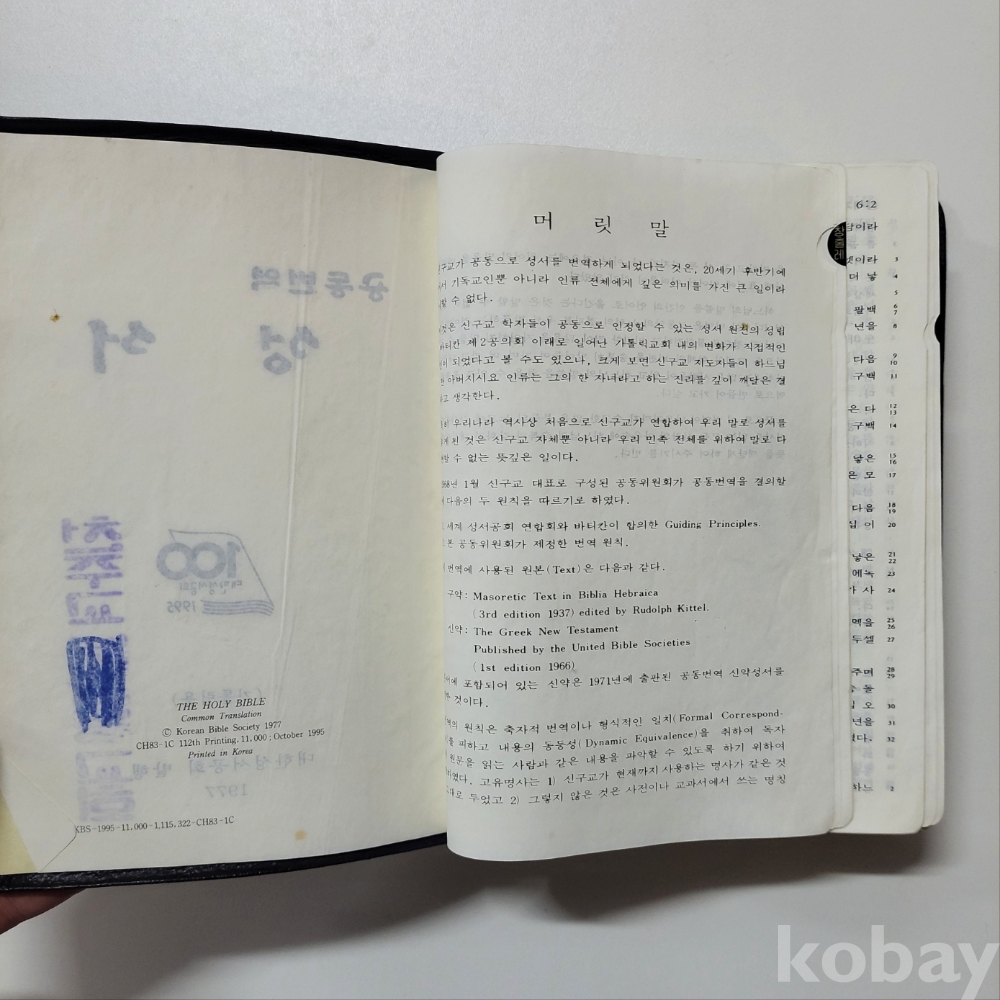 THE HOLY BIBLE
Common Translation
© Korean Bible Society 1977
CH83-1C 112th Printing. 11,000; October 1995
Printed in Korea
KBS-1995-11,000-1,115,322-CH83-1C
공동번역
성서
100
대한성서공회
1995
대한성서공회 발행
1977
머릿말
공동으로 성서를 번역하게 되었다는 것은, 20세기 후반기에
기독교인뿐 아니라 인류 전체에게 깊은 의미를 가진 큰 일이라
없다.
신구교 학자들이 공동으로 인정할 수 있는 성서 원전의 성립
바티칸 제 2 공의회 이래로 일어난 가톨릭교회 내의 변화가 직접적인
되었다고 볼 수도 있으나, 크게 보면 신구교 지도자들이 하느님
아버지시요 인류는 그의 한 자녀라고 하는 진리를 깊이 깨달은 결
생각한다.
우리나라 역사상 처음으로 신구교가 연합하여 우리 말로 성서를
된 것은 신구교 자체뿐 아니라 우리 민족 전체를 위하여 말로 다
수 없는 뜻깊은 일이다.
1월 신구교 대표로 구성된 공동위원회가 공동번역을 결의함
다음의 두 원칙을 따르기로 하였다.
세계 성서공회 연합회와 바티칸이 합의한 Guiding Principles.
공동위원회가 제정한 번역 원칙.
번역에 사용된 원본(Text)은 다음과 같다.
구약: Masoretic Text in Biblia Hebraica
(3rd edition 1937) edited by Rudolph Kittel.
신약: The Greek New Testament
Published by the United Bible Societies
(1st edition 1966)
포함되어 있는 신약은 1971년에 출판된 공동번역 신약성서를
것이다.
원칙은 축자적 번역이나 형식적인 일치(Formal Correspond-
피하고 내용의 동등성(Dynamic Equivalence)을 취하여 독자
원문을 읽는 사람과 같은 내용을 파악할 수 있도록 하기 위하여
고유명사는 1) 신구교가 현재까지 사용하는 명사가 같은 것
두었고 2) 그렇지 않은 것은 사전이나 교과서에서 쓰는 명칭
6:2
3
더 낳 4
5
팔백 6
7
년을 8
다음 9
10
구백 11
은 다 12
13
구백 14
낳은 15
16
은 모 17
다음 18
19
십 이 20
낳은 21
22
에녹 23
가 사 24
25
26
두셀 27
주며 28
29
30
년을 31
32
2
kobay